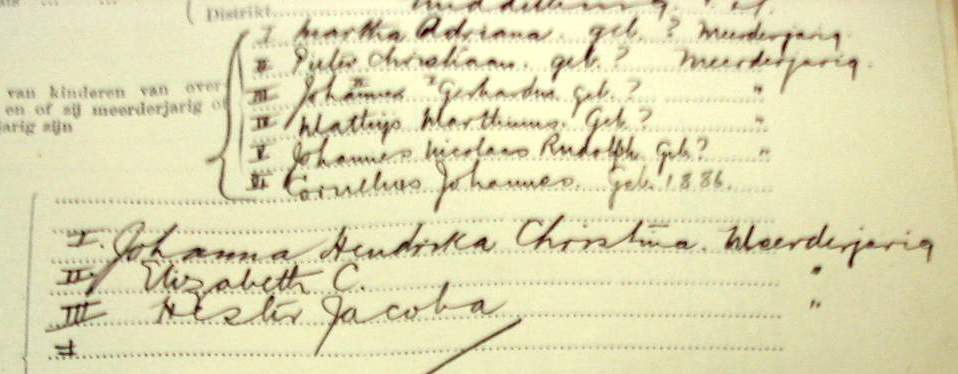 Distrikt
I Martha Adriana. geb. ? Meerderjarig.
van kinderen van over
II Pieter Christiaan. geb. ? Meerderjarig.
en of sij meerderjarig of
III Johannes Gerhardus geb. ? "
jarig sijn
IV Mattys Marthinus. Geb ? "
V Johannes Nicolaas Rudolph Geb? "
VI Cornelius Johannes. Geb. 1886.
I. Johanna Hendrika Christina. Meerderjarig
II. Elizabeth C. "
III Hester Jacoba "